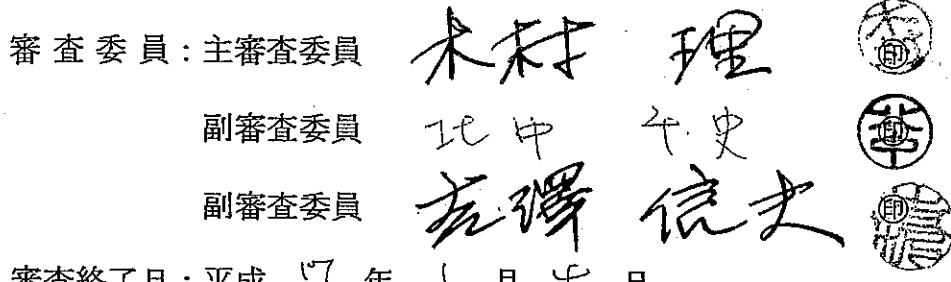 審査委員：主審査委員 木村 理 印
副審査委員 北中 印
副審査委員 信夫 印
審査終了日：平成 17 年 1 月 日